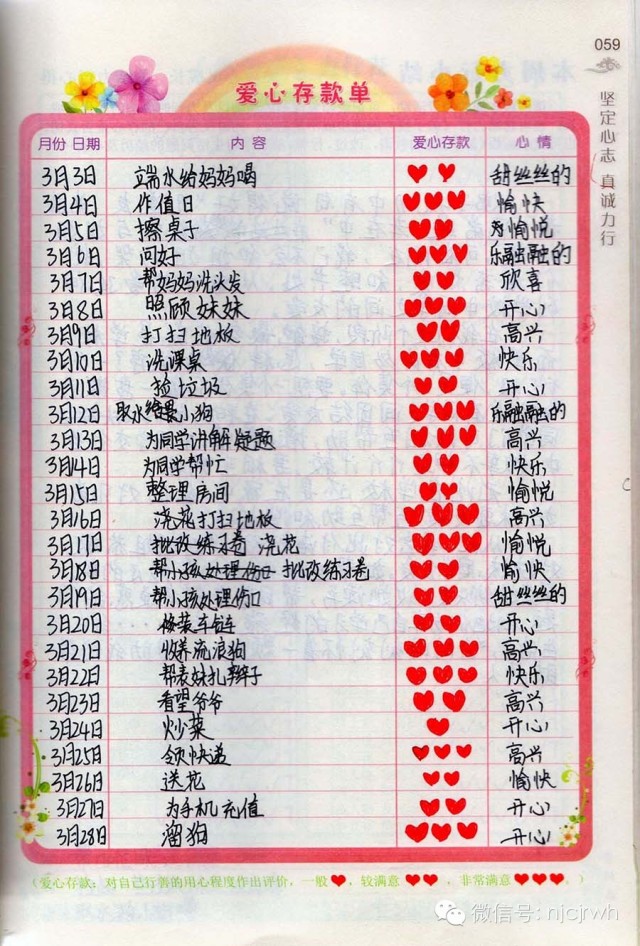 059
坚定心志 真诚力行
爱心存款单
月份 日期 内容 爱心存款 心情
3月3日 端水给妈妈喝 ♥♥ 甜丝丝的
3月4日 作值日 ♥♥♥ 愉快
3月5日 擦桌子 ♥♥ 愉悦
3月6日 问好 ♥♥♥ 乐融融的
3月7日 帮妈妈洗头发 ♥♥ 欣喜
3月8日 照顾妹妹 ♥♥♥ 开心
3月9日 打扫地板 ♥♥ 高兴
3月10日 洗课桌 ♥♥♥ 快乐
3月11日 捡垃圾 ♥♥ 开心
3月12日 取水给小狗 ♥♥♥ 乐融融的
3月13日 为同学讲解疑题 ♥♥♥ 高兴
3月14日 为同学帮忙 ♥♥ 快乐
3月15日 整理房间 ♥♥ 愉悦
3月16日 浇花打扫地板 ♥♥♥ 高兴
3月17日 批改练习卷 浇花 ♥♥♥ 愉悦
3月18日 帮小孩处理伤口 批改练习卷 ♥♥ 愉快
3月19日 帮小孩处理伤口 ♥♥ 甜丝丝的
3月20日 修装车链 ♥♥ 开心
3月21日 收养流浪狗 ♥♥♥ 高兴
3月22日 帮表妹扎辫子 ♥♥♥ 快乐
3月23日 看望爷爷 ♥♥ 高兴
3月24日 炒菜 ♥ 开心
3月25日 领快递 ♥♥♥ 高兴
3月26日 送花 ♥♥ 愉快
3月27日 为手机充值 ♥♥ 开心
3月28日 溜狗 ♥♥♥ 开心
(爱心存款：对自己行善的用心程度作出评价，一般♥，较满意♥♥，非常满意♥♥♥。)
微信号: njcjrwh